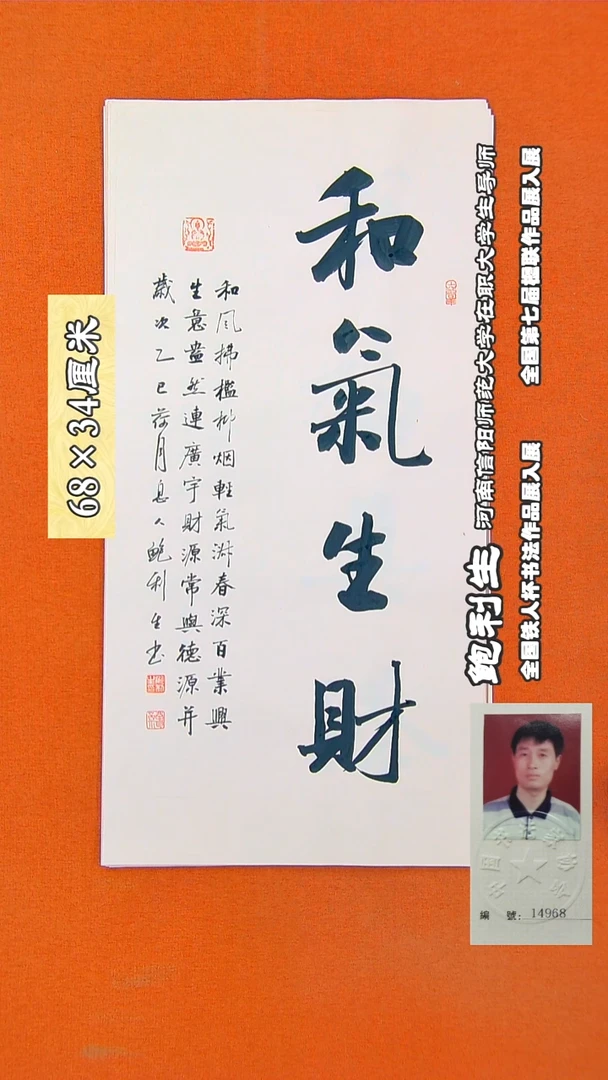 和氣生財
和風拂檻柳烟輕氣淑春深百業興
生意盎然連廣宇財源常與德源并
歲次乙巳荷月息人鮑利生书
68×34厘米
鲍利生 河南信阳师范大学在职大学生导师
全国铁人杯书法作品展入展 全国第七届楹联作品展入展
編號：14968